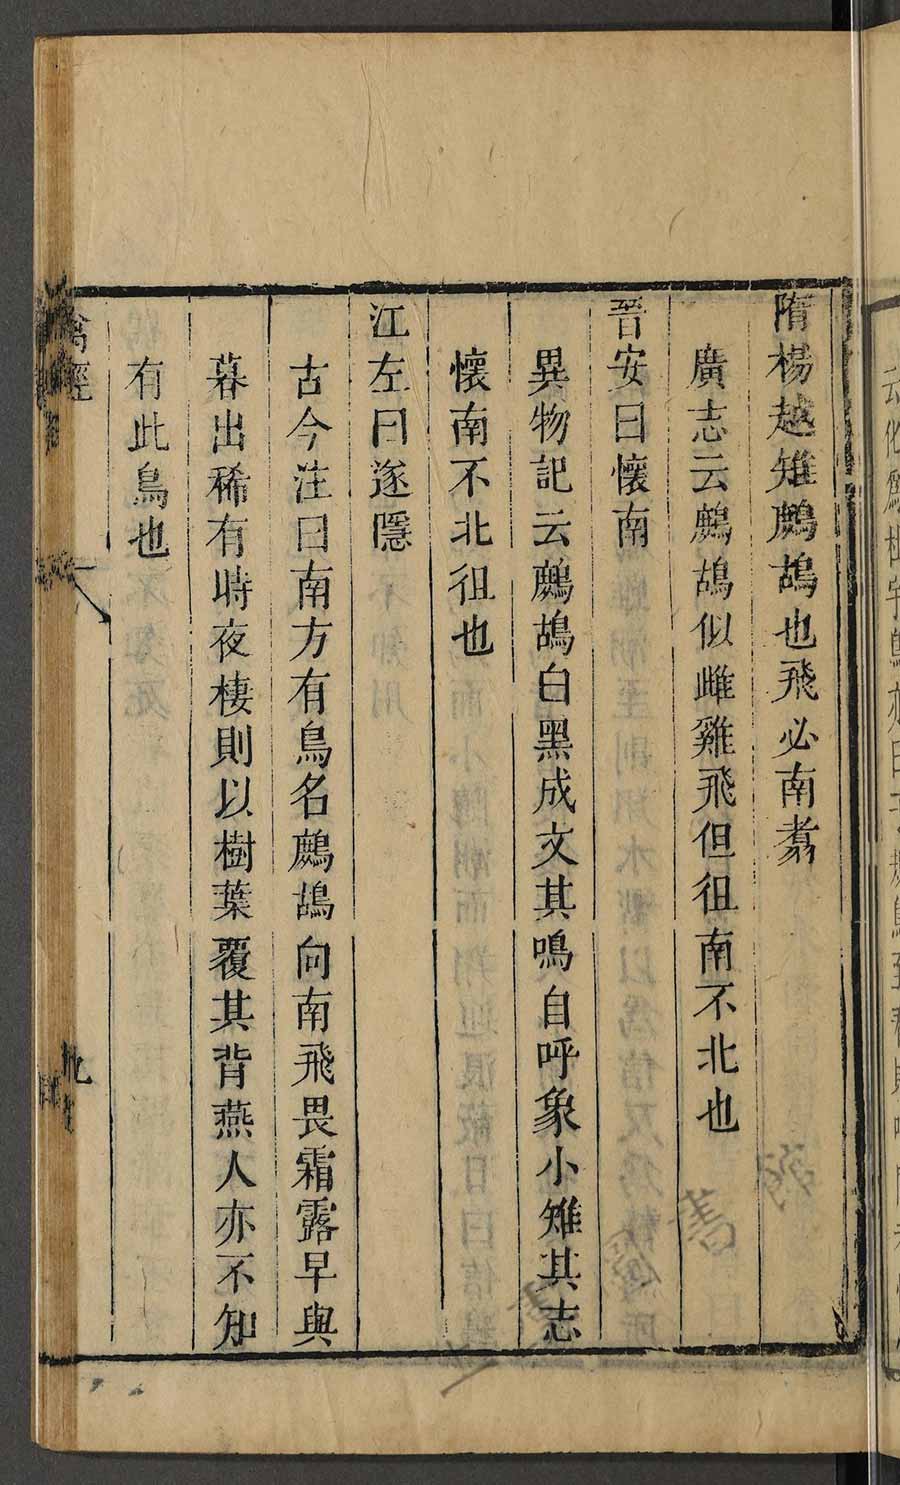 隋楊越雉鷓鴣也飛必南翥
廣志云鷓鴣似雌雞飛但徂南不北也
晋安曰懷南
異物記云鷓鴣白黑成文其鳴自呼象小雉其志
懷南不北徂也
江左曰逐隱
古今注曰南方有鳥名鷓鴣向南飛畏霜露早與
暮出稀有時夜棲則以樹葉覆其背燕人亦不知
有此鳥也
禽經
九